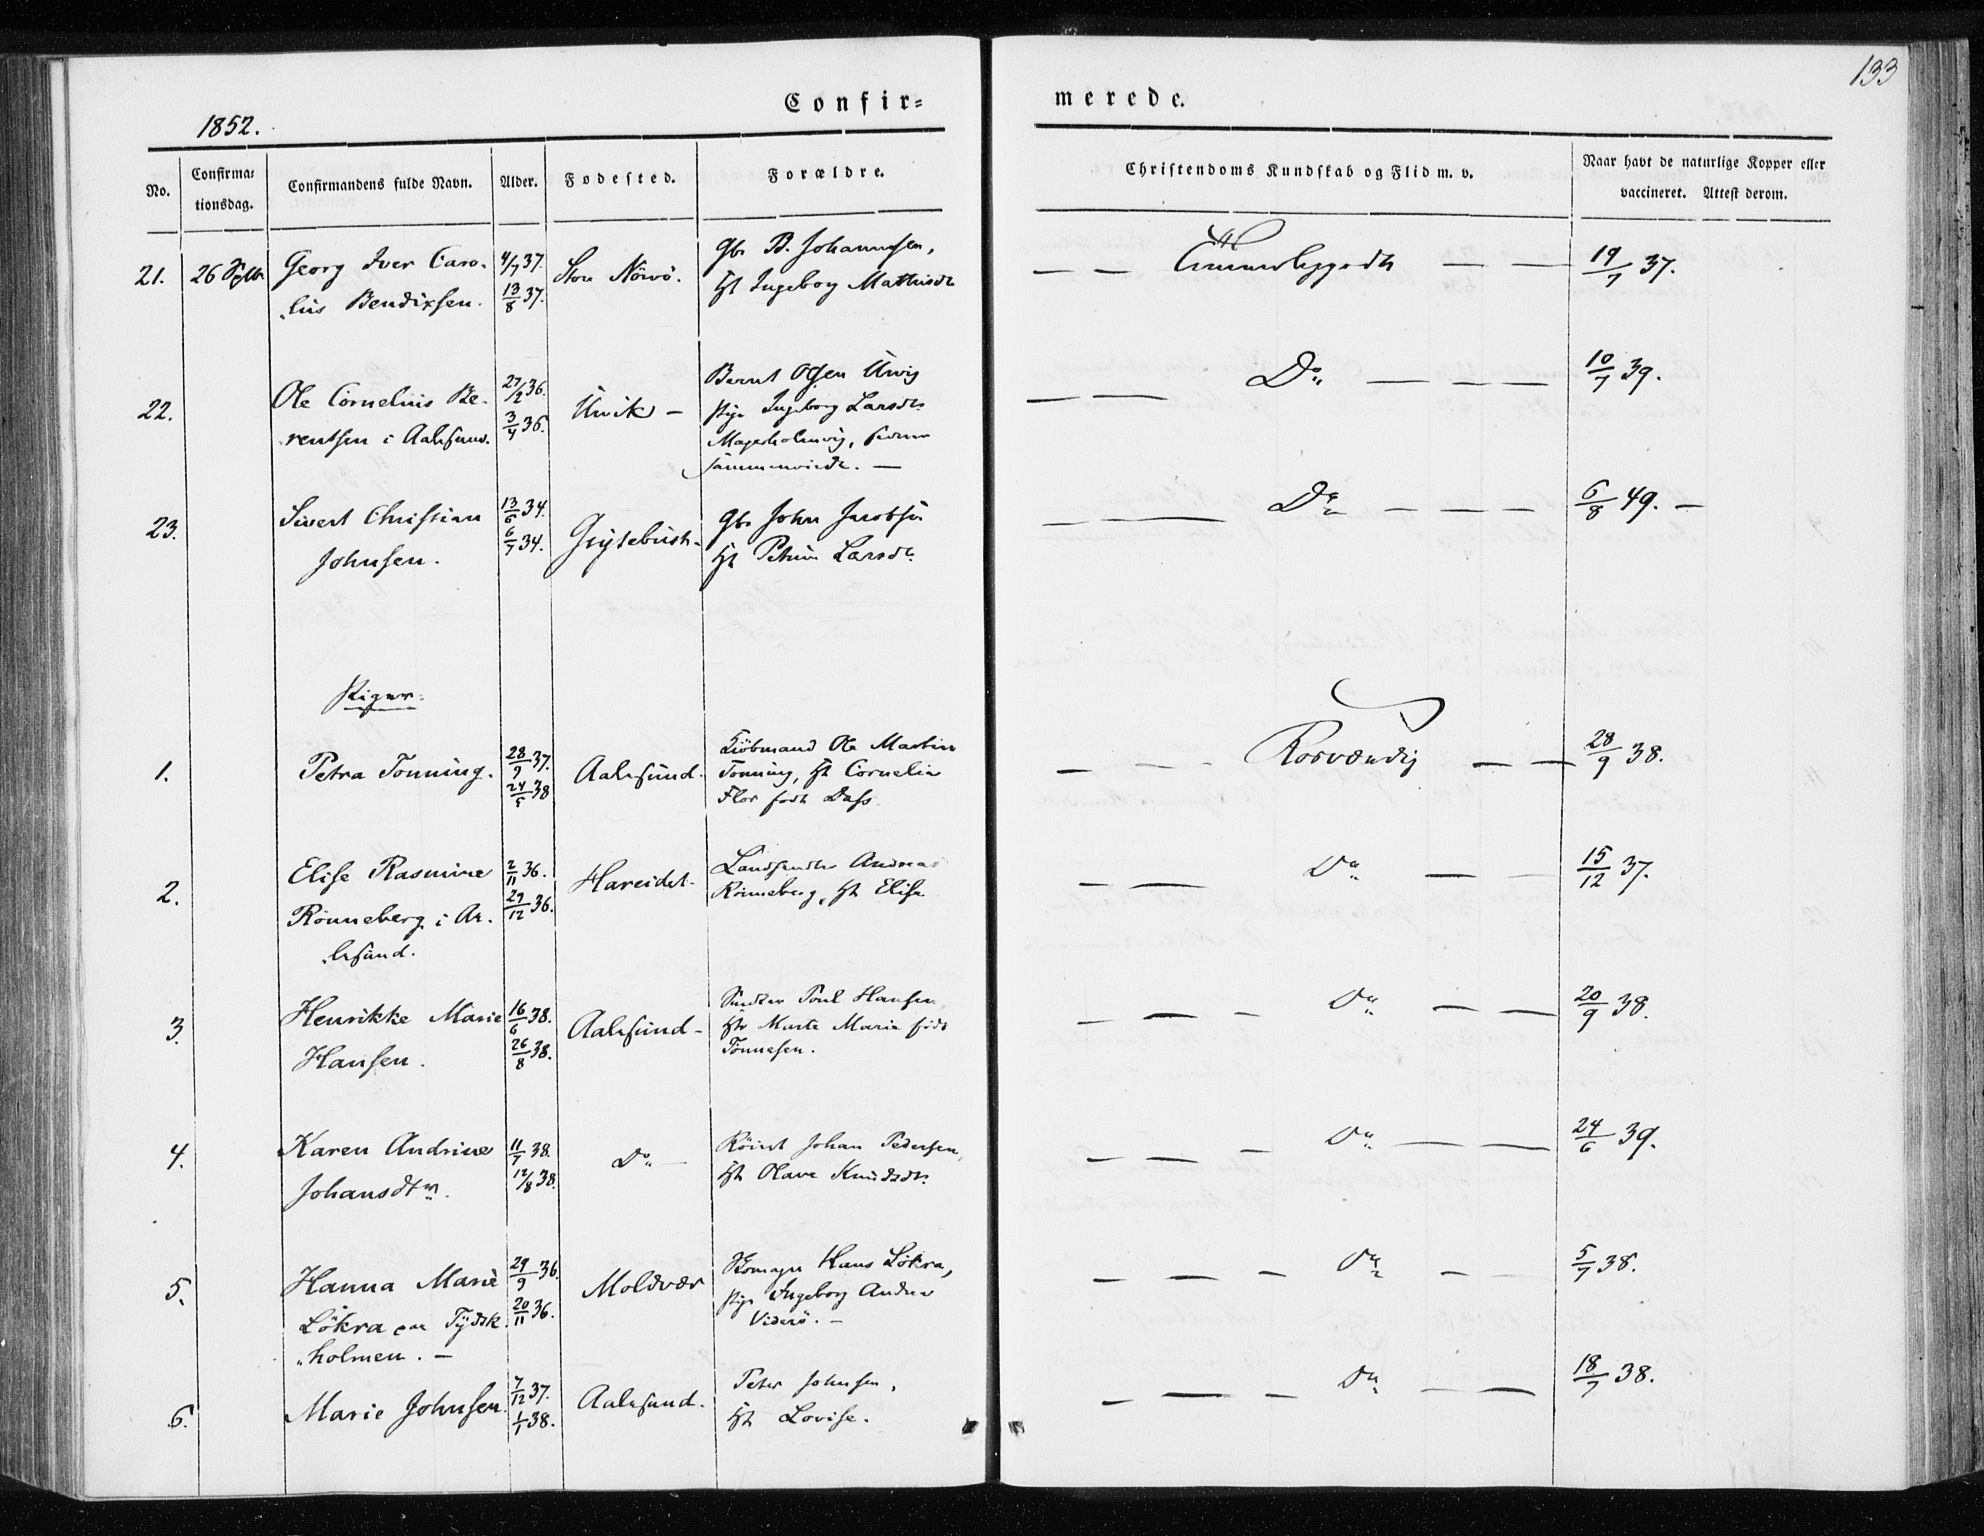 133
Confir=
merede.
1852.
No.
Confirma=
tionsdag.
Confirmandens fulde Navn.
Alder.
Fodested.
Forældre.
Christendoms Kundskab og Flid m. v.
Naar havt de naturlige Kopper eller
vaccineret. Attest derom.
21. 26 Georg Iver Caro-
lus Bendixsen.
4/7 37.
13/8 37.
Store Nörvö.
Gbr B. Johannesen,
H Ingeborg Mathisdt
19/7 37.
22.
Ole Cornelius Be-
rentsen i Aalesund.
27/2 36.
3/4 36.
Urvik –
Bernt Olsen Urvig
pige Ingeborg Larsdt
Magerholmvig,
sammenviede. –
Do
10/7 39.
23.
Sivert Christian
Johnsen.
13/6 34.
6/7 34.
Grytebust-
Gbr John Jacobsen
H Petrine Larsdt
Do
6/8 49. –
Piger.
1.
Petra Tonning.
28/9 37.
24/5 38
Aalesund.
Kiöbmand Ole Martin
Tonning, H Cornelia
Flor født Dass
Rosværdig
28/9 38.
2.
Elise Rasmine
Rönneberg i Aa-
lesund.
2/11 36.
27/12 36.
Hareidet-
Andreas
Rönneberg, H Elise
Do
15/12 37.
3.
Henrikke Marie
Hansen.
16/6 38.
26/8 38.
Aalesund-
Poul Hansen
H Marte Marie født
Tönnesen.
Do
20/9 38.
4.
Karen Andrine
Johansdtr.
11/7 38.
12/8 38.
Do –
Johan Pedersen,
H Olave Knudsdtr
Do
24/6 39.
5.
Hanna Marie
Lökra paa Tydsk-
holmen. –
29/9 36.
20/11 36.
Moldvær
Skomager Hans Lökra,
pige Ingeborg Andrea
Viderö. –
Do
5/7 38.
6.
Marie Johnsen.
7/12 37.
1/1 38.
Aalesund.
Peter Johnsen,
H Lovise.
Do
18/7 38.